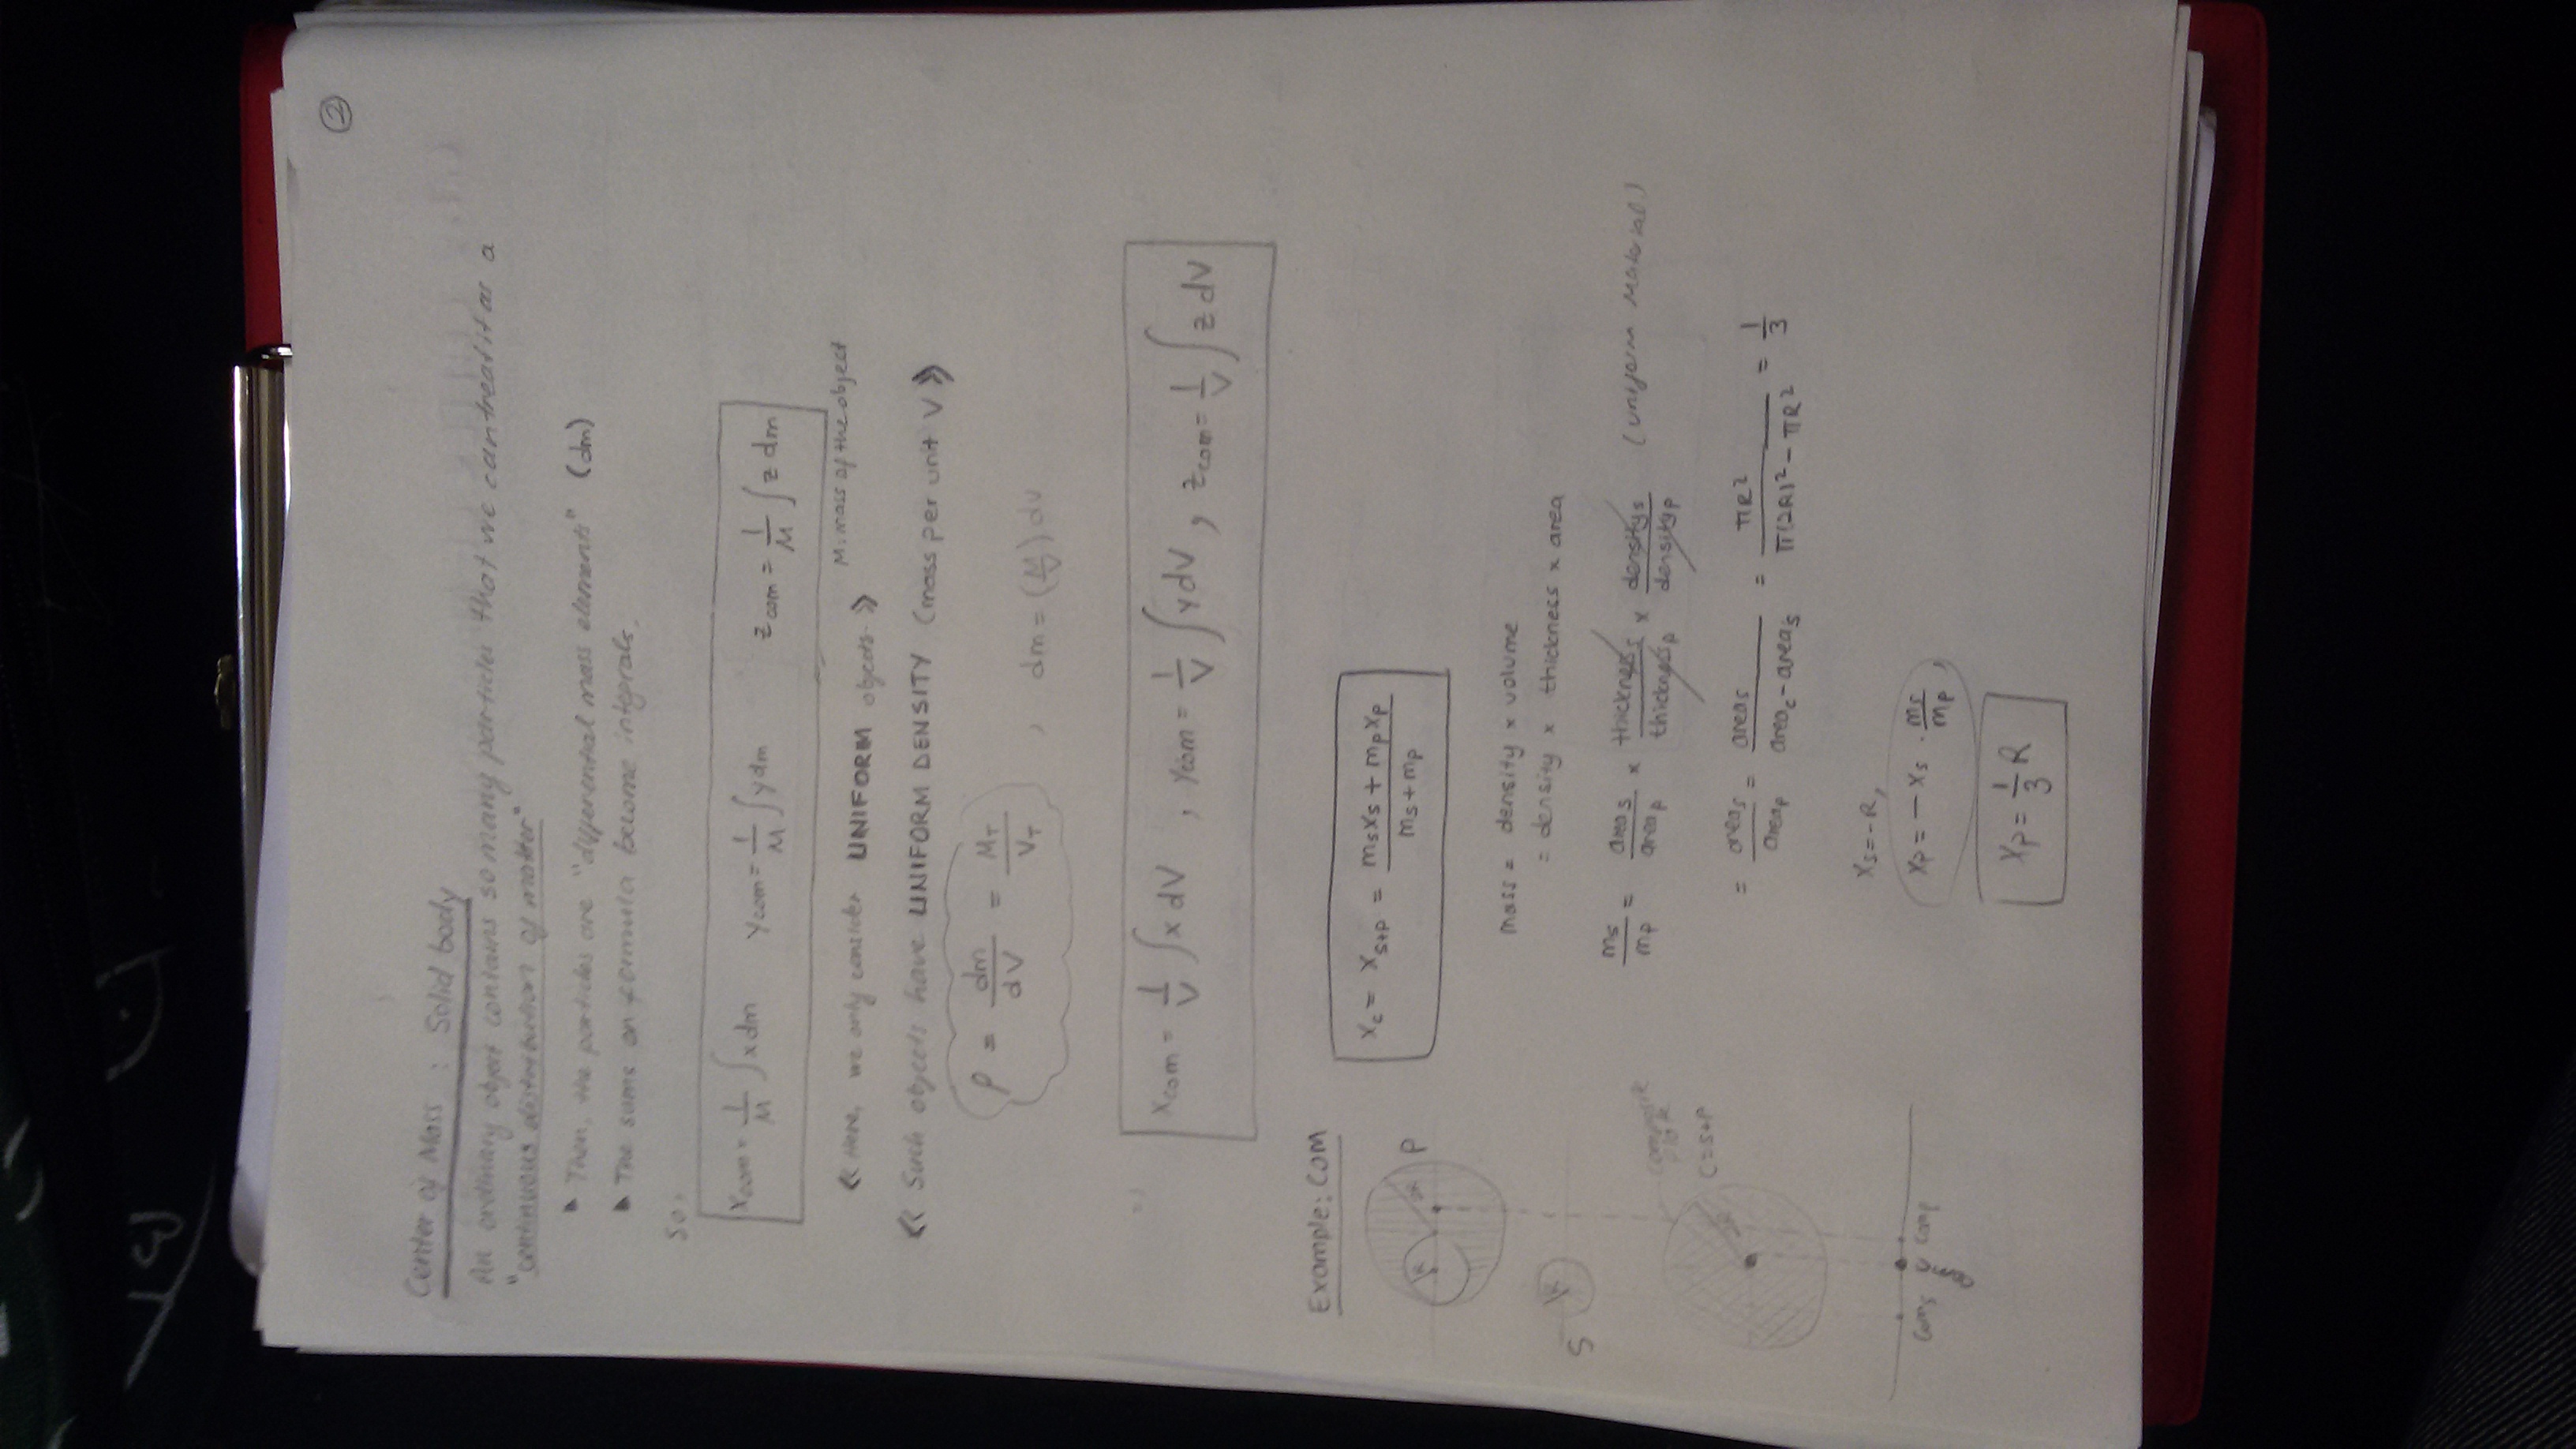 ②
Center of Mass : Solid body
An ordinary object contains so many particles that we can treat it as a
"continuous distribution of matter"
▸ Then, the particles are "differential mass elements" (dm)
▸ The sums on formula become integrals,
So,
x_com = 1/M ∫x dm   y_com = 1/M ∫y dm   z_com = 1/M ∫z dm
M: mass of the object
≪ Here, we only consider UNIFORM objects. ≫
≪ Such objects have UNIFORM DENSITY (mass per unit V ≫
ρ = dm/dV = M_T/V_T , dm = (M/V) dV
=> x_com = 1/V ∫x dV , y_com = 1/V ∫y dV , z_com = 1/V ∫z dV
Example: COM
x_c = x_s+p = (m_s x_s + m_p x_p)/(m_s + m_p)
R 2R P
mass = density × volume
= density × thickness × area
S R
m_s/m_p = area_s/area_p × thickness_s/thickness_p × density_s/density_p (uniform material)
composite
plate
C=S+P
2R
= area_s/area_p = area_s/(area_c - area_s) = πR²/(π(2R)² - πR²) = 1/3
x_s = -R,
com_s com_c com_p
x_p = - x_s . m_s/m_p ,
x_p = 1/3 R